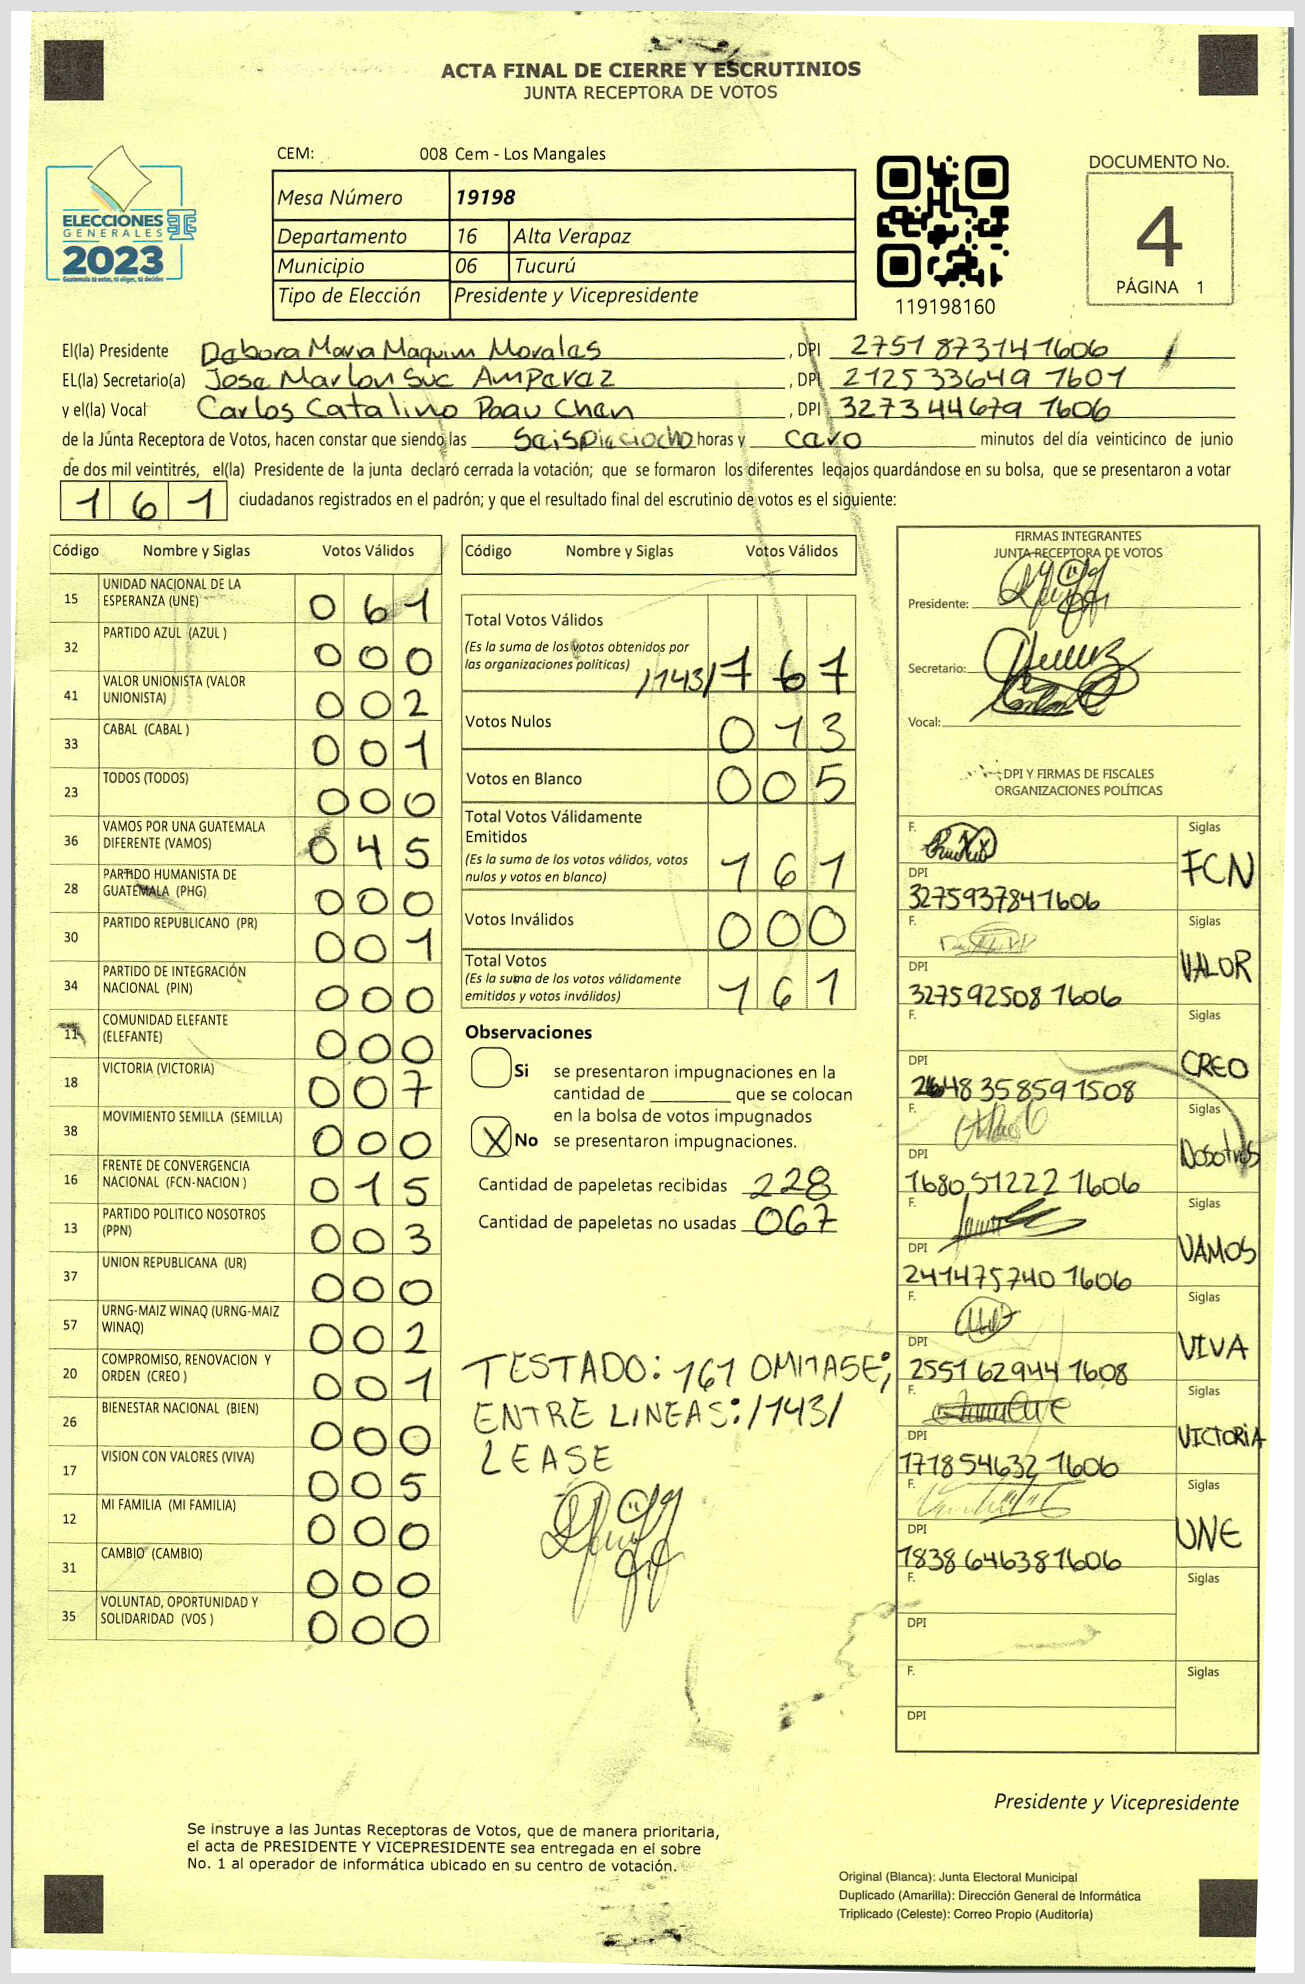 ACTA FINAL DE CIERRE Y ESCRUTINIOS
JUNTA RECEPTORA DE VOTOS
CEM: 008 Cem - Los Mangales
Mesa Número 19198
Departamento 16 Alta Verapaz
Municipio 06 Tucurú
Tipo de Elección Presidente y Vicepresidente
ELECCIONES
GENERALES
2023
Guatemala tú eres, tú eliges, tú decides
119198160
DOCUMENTO No.
4
PÁGINA 1
El(la) Presidente Debora Maria Maquim Morales, DPI 2751 87314 1606
EL(la) Secretario(a) Jose Marlon Suc Amparaz, DPI 2125 33649 1601
y el(la) Vocal Carlos Catalino Paau Chen, DPI 3273 44679 1606
de la Junta Receptora de Votos, hacen constar que siendo las horas y cero minutos del día veinticinco de junio
de dos mil veintitrés, el(la) Presidente de la junta declaró cerrada la votación; que se formaron los diferentes legajos quardándose en su bolsa, que se presentaron a votar
161 ciudadanos registrados en el padrón; y que el resultado final del escrutinio de votos es el siguiente:
Código Nombre y Siglas Votos Válidos
15 UNIDAD NACIONAL DE LA
ESPERANZA (UNE) 061
32 PARTIDO AZUL (AZUL ) 000
41 VALOR UNIONISTA (VALOR
UNIONISTA) 002
33 CABAL (CABAL ) 001
23 TODOS (TODOS) 000
36 VAMOS POR UNA GUATEMALA
DIFERENTE (VAMOS) 045
28 PARTIDO HUMANISTA DE
GUATEMALA (PHG) 000
30 PARTIDO REPUBLICANO (PR) 001
34 PARTIDO DE INTEGRACIÓN
NACIONAL (PIN) 000
11 COMUNIDAD ELEFANTE
(ELEFANTE) 000
18 VICTORIA (VICTORIA) 007
38 MOVIMIENTO SEMILLA (SEMILLA) 000
16 FRENTE DE CONVERGENCIA
NACIONAL (FCN-NACION ) 015
13 PARTIDO POLITICO NOSOTROS
(PPN) 003
37 UNION REPUBLICANA (UR) 000
57 URNG-MAIZ WINAQ (URNG-MAIZ
WINAQ) 002
20 COMPROMISO, RENOVACION Y
ORDEN (CREO ) 001
26 BIENESTAR NACIONAL (BIEN) 000
17 VISION CON VALORES (VIVA) 005
12 MI FAMILIA (MI FAMILIA) 000
31 CAMBIO (CAMBIO) 000
35 VOLUNTAD, OPORTUNIDAD Y
SOLIDARIDAD (VOS ) 000
Código Nombre y Siglas Votos Válidos
Total Votos Válidos
(Es la suma de los votos obtenidos por
las organizaciones políticas) /143/ 161
Votos Nulos 013
Votos en Blanco 005
Total Votos Válidamente
Emitidos
(Es la suma de los votos válidos, votos
nulos y votos en blanco) 161
Votos Inválidos 000
Total Votos
(Es la suma de los votos válidamente
emitidos y votos inválidos) 161
Observaciones
Si se presentaron impugnaciones en la
cantidad de ________ que se colocan
en la bolsa de votos impugnados
X No se presentaron impugnaciones.
Cantidad de papeletas recibidas 228
Cantidad de papeletas no usadas 067
TESTADO: 161 OMITASE;
ENTRE LINEAS: /143/
LEASE
FIRMAS INTEGRANTES
JUNTA RECEPTORA DE VOTOS
Presidente:
Secretario:
Vocal:
DPI Y FIRMAS DE FISCALES
ORGANIZACIONES POLÍTICAS
F. Siglas
FCN
DPI
3275937841606
F. Siglas
VALOR
DPI
327592508 1606
F. Siglas
CREO
DPI
2648 35859 1508
F. Siglas
Nosotros
DPI
1680 51222 1606
F. Siglas
VAMOS
DPI
241475740 1606
F. Siglas
VIVA
DPI
2551 62944 1608
F. Siglas
VICTORIA
DPI
171854632 1606
F. Siglas
UNE
DPI
1838 64638 1606
F. Siglas
DPI
F. Siglas
DPI
Presidente y Vicepresidente
Se instruye a las Juntas Receptoras de Votos, que de manera prioritaria,
el acta de PRESIDENTE Y VICEPRESIDENTE sea entregada en el sobre
No. 1 al operador de informática ubicado en su centro de votación.
Original (Blanca): Junta Electoral Municipal
Duplicado (Amarilla): Dirección General de Informática
Triplicado (Celeste): Correo Propio (Auditoría)